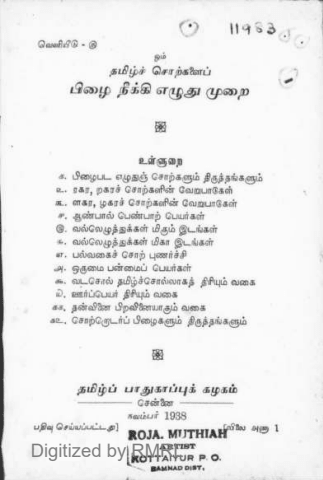 11963
வெளியீடு - ௫
ஓம்
தமிழ்ச் சொற்களைப்
பிழை நீக்கி எழுது முறை
உள்ளுறை
௧. பிழைபட எழுதுஞ் சொற்களும் திருத்தங்களும்
௨. ரகர, றகரச் சொற்களின் வேறுபாடுகள்
௩. ளகர, ழகரச் சொற்களின் வேறுபாடுகள்
௪. ஆண்பால் பெண்பாற் பெயர்கள்
௫. வல்லெழுத்துக்கள் மிகும் இடங்கள்
௬. வல்லெழுத்துக்கள் மிகா இடங்கள்
௭. பல்வகைச் சொற் புணர்ச்சி
௮. ஒருமை பன்மைப் பெயர்கள்
௯. வடசொல் தமிழ்ச்சொல்லாகத் திரியும் வகை
௰. ஊர்ப்பெயர் திரியும் வகை
௧௧. தன்வினை பிறவினையாகும் வகை
௧௨. சொற்றொடர்ப் பிழைகளும் திருத்தங்களும்
தமிழ்ப் பாதுகாப்புக் கழகம்
சென்னை
நவம்பர் 1938
பதிவு செய்யப்பட்டது] [விலை அணா 1
ROJA. MUTHIAH
ARTIST
KOTTAIYUR P. O.
RAMNAD DIST.
Digitized by RMRL